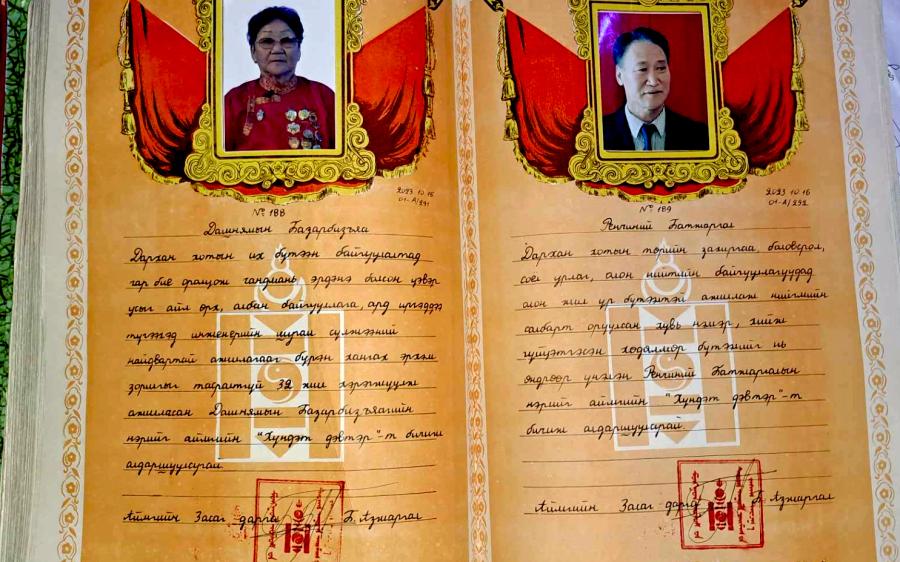 2023.10.16
01-А/291
№ 188
Дашнямын Базарбизъяа
Дархан хотын их бүтээн байгуулалтад
гар бие оролцож гандиань эрдэнэ болсон цэвэр
усыг айл өрх, албан байгууллага, ард иргэддээ
түгээгэд инженерийн шугам сүлжээний
найдвартай ажиллагааг бүрэн хангах эрхэм
зоригыг тасралтгүй 32 жил хэрэгжүүлж
ажилласан Дашнямын Базарбизъяагийн
нэрийг аймгийн "Хүндэт дэвтэр"-т бичиж
алдаршуулсугай.
Аймгийн Засаг дарга Б. Азжаргал
2023 10 16
01-А/292
№ 189
Ренчиний Батжаргал
Дархан хотын төрийн захиргаа, боловсрол,
соёл урлаг, олон нийтийн байгууллагуудад
олон жил үр бүтээлтэй ажиллаж нийгмийн
салбарт оруулсан хувь нэмэр, хийж
гүйцэтгэсэн хөдөлмөр бүтээлийг нь
өндрөөр үнэлэн Ренчиний Батжаргалын
нэрийг аймгийн "Хүндэт дэвтэр"-т
бичиж алдаршуулсугай.
Аймгийн Засаг дарга Б. Азжаргал